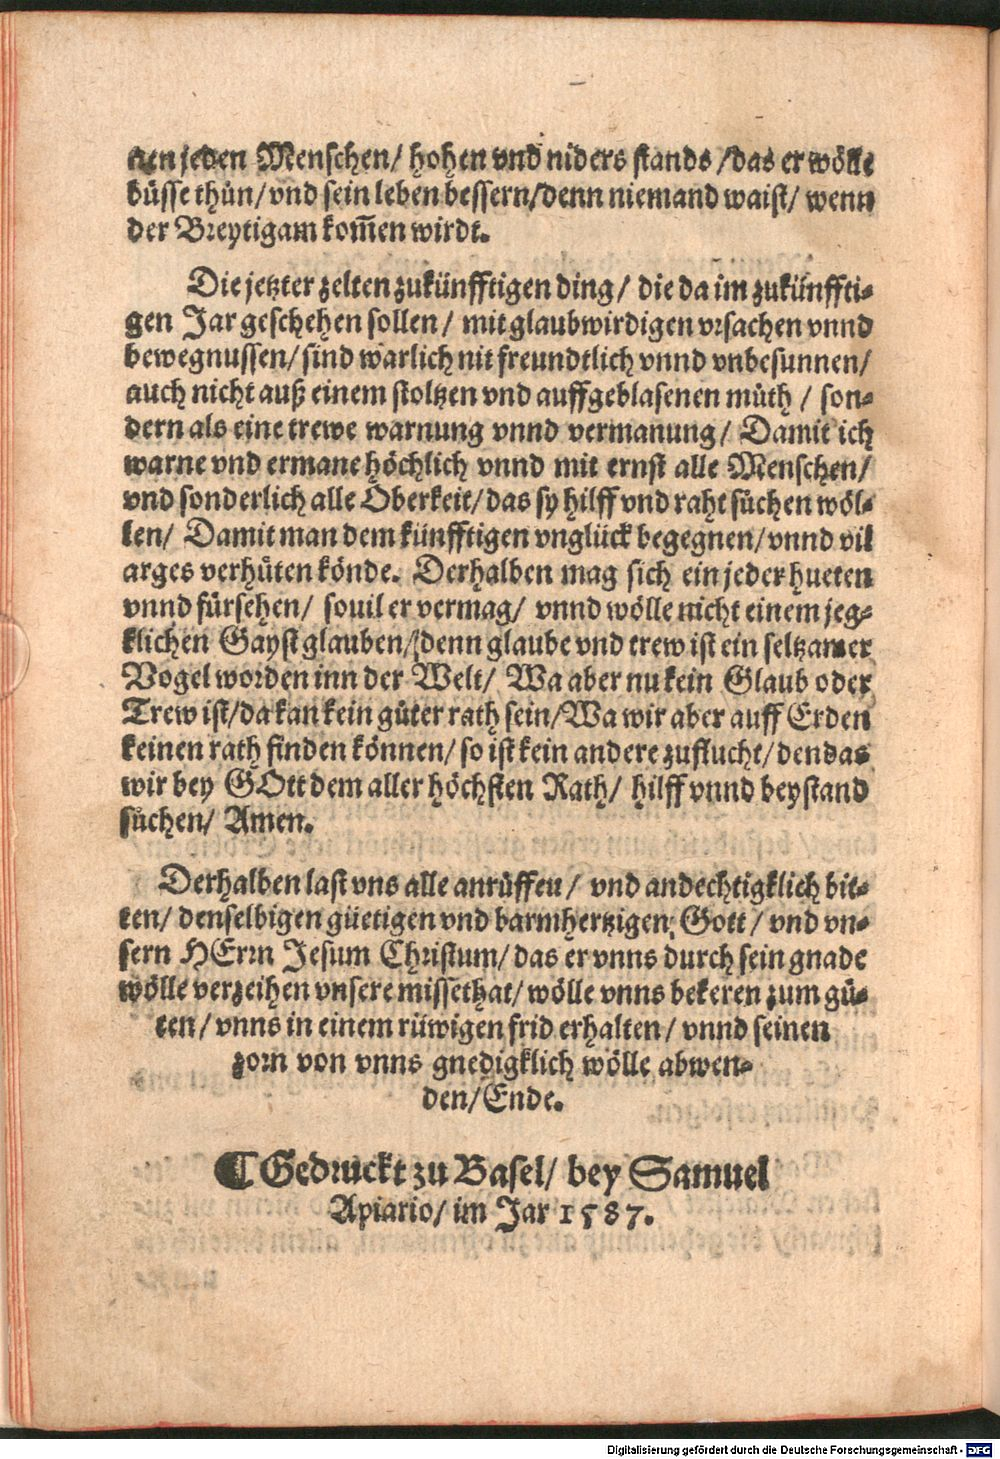 nen jeden Menschen/ hohen vnd niders stands /das er wölle
bůsse thůn/ vnd sein leben bessern/denn niemand waist/ wenn
der Breytigam kom̃en wirdt.
Die jetzter zelten zukünfftigen ding/ die da im zukünffti-
gen Jar geschehen sollen/ mit glaubwirdigen vrsachen vnnd
bewegnussen/ sind warlich nit freundtlich vnnd vnbesunnen/
auch nicht auß einem stoltzen vnd auffgeblasenen můth / son-
dern als eine trewe warnung vnnd vermanung/ Damit ich
warne vnd ermane höchlich vnnd mit ernst alle Menschen/
vnd sonderlich alle Oberkeit/ das sy hilff vnd raht sůchen wöl-
len/ Damit man dem künfftigen vnglück begegnen/ vnnd vil
arges verhüten könde. Derhalben mag sich ein jeder hueten
vnnd fürsehen/ souil er vermag/ vnnd wölle nicht einem jeg-
klichen Gayst glauben/ denn glaube vnd trew ist ein seltzamer
Vogel worden inn der Welt/ Wa aber nu kein Glaub oder
Trew ist/ da kan kein gůter rath sein/ Wa wir aber auff Erden
keinen rath finden können/ so ist kein andere zuflucht/ den das
wir bey GOtt dem aller höchsten Rath/ hilff vnnd beystand
sůchen/ Amen.
Derhalben last vns alle anrůffen/ vnd andechtigklich bit-
ten/ denselbigen güetigen vnd barmhertzigen Gott/ vnd vn-
sern HErrn Jesum Christum/ das er vnns durch sein gnade
wölle verzeihen vnsere missethat/ wölle vnns bekeren zum gů-
ten/ vnns in einem rüwigen frid erhalten/ vnnd seinen
zorn von vnns gnedigklich wölle abwen-
den/ Ende.
¶ Gedruckt zu Basel/ bey Samuel
Apiario/ im Jar 1587.
Digitalisierung gefördert durch die Deutsche Forschungsgemeinschaft - DFG